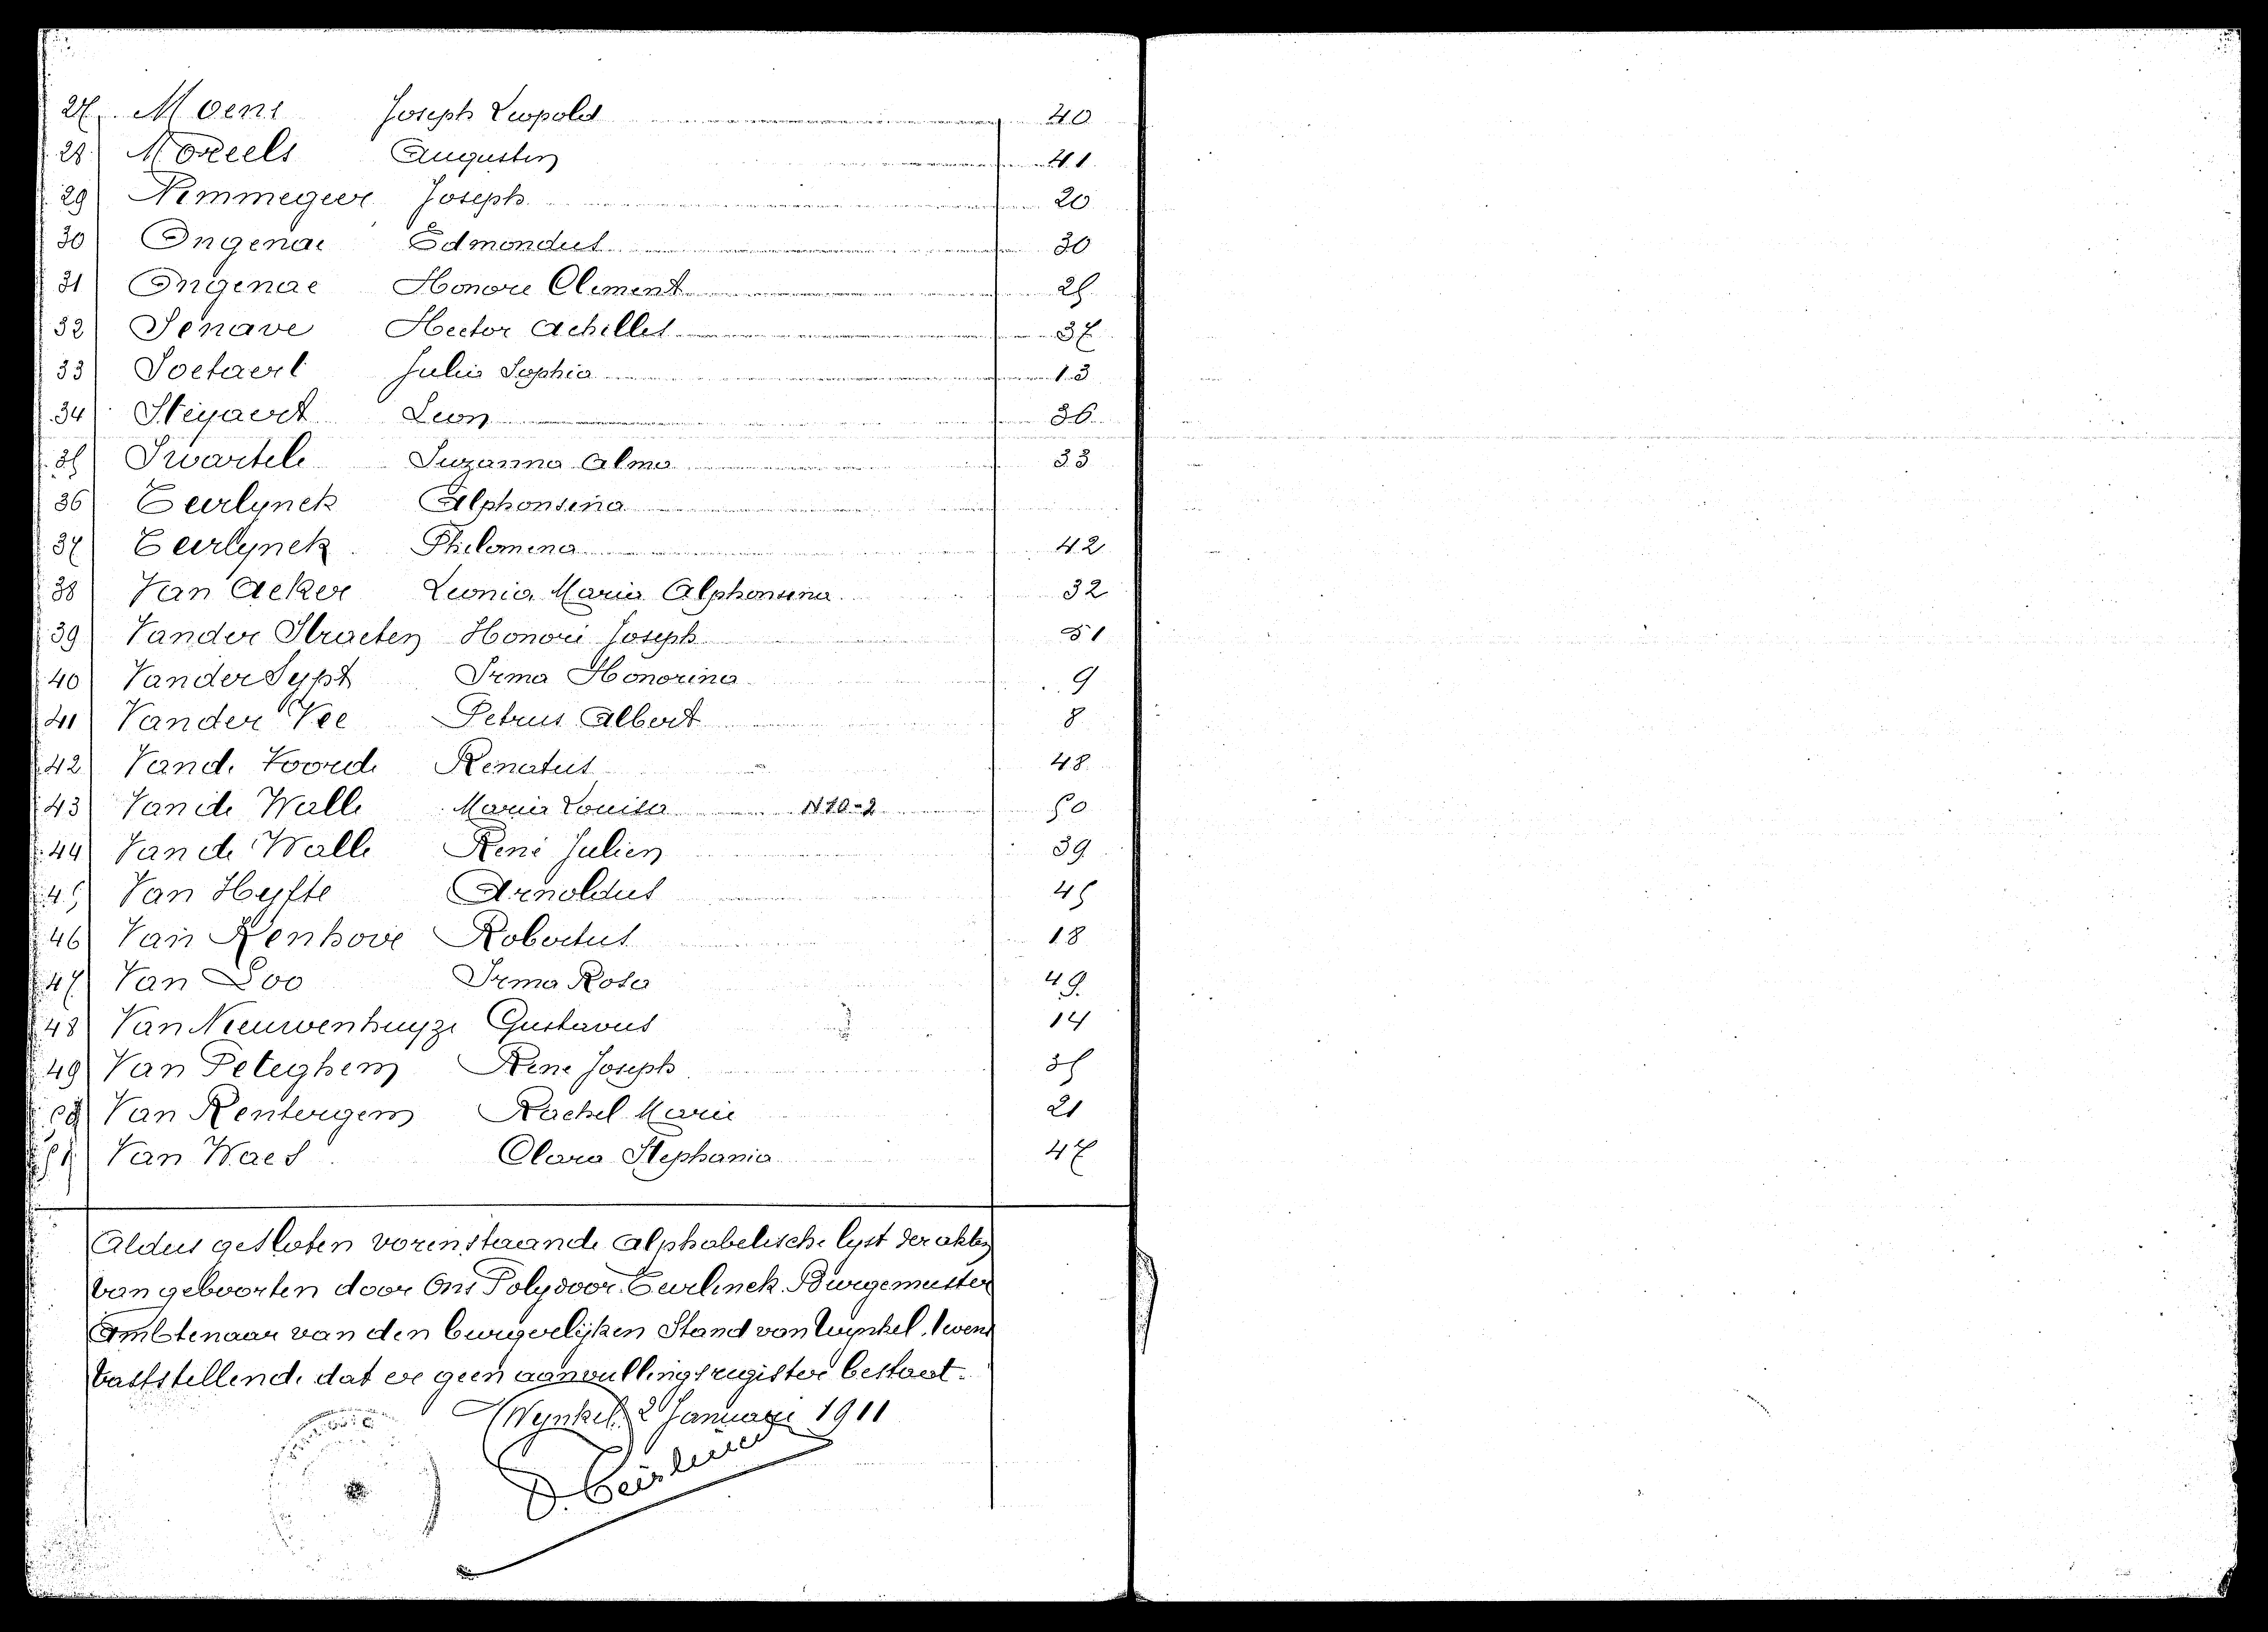 27 Moens Joseph Leopold 40
28 Moreels Augustin 41
29 Nimmegeer Joseph 20
30 Ongenae Edmondus 30
31 Ongenae Honoré Clement 25
32 Senave Hector Achilles 37
33 Soetaert Julia Sophia 13
34 Steyaert Leon 36
35 Swartele Suzanna Alma 33
36 Teerlynck Alphonsina
37 Teerlynck Philomena 42
38 Van Acker Leonia Maria Alphonsina 32
39 Vander Straeten Honoré Joseph 51
40 Vander Sypt Irma Honorina 9
41 Vander Vee Petrus Albert 8
42 Van de Voorde Renatus 48
43 Van de Walle Maria Louisa 50
44 Van de Walle René Julien 39
45 Van Hyfte Arnoldus 45
46 Van Kenhove Robertus 18
47 Van Loo Irma Rosa 49
48 Van Nieuwenhuyze Gustavus 14
49 Van Peteghem René Joseph 35
50 Van Rentergem Rachel Marie 21
51 Van Waes Clara Stephania 47
Aldus gesloten vorenstaande alphabetische lyst der akten
van geboorten door Ons Polydoor Teirlinck Burgemeester
Ambtenaar van den burgerlijken Stand van Wynkel, tevens
vaststellende dat er geen aanvullingsregister bestaat.
Wynkel 2 Januari 1911
P. Teirlinck